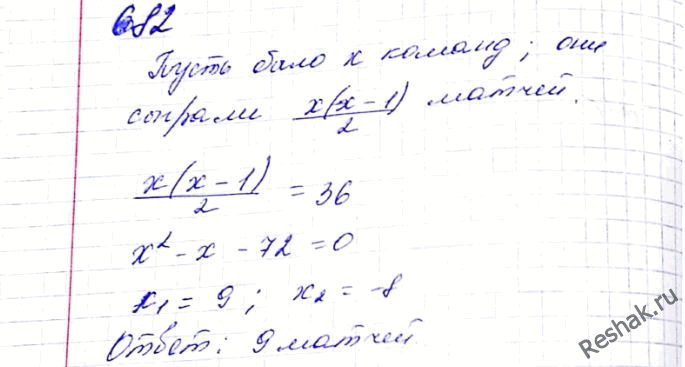 682
Пусть было x команд; они
сыграли x(x-1)/2 матчей.
x(x-1)/2 = 36
x² - x - 72 = 0
x₁ = 9; x₂ = -8
Ответ: 9 матчей
Reshak.ru